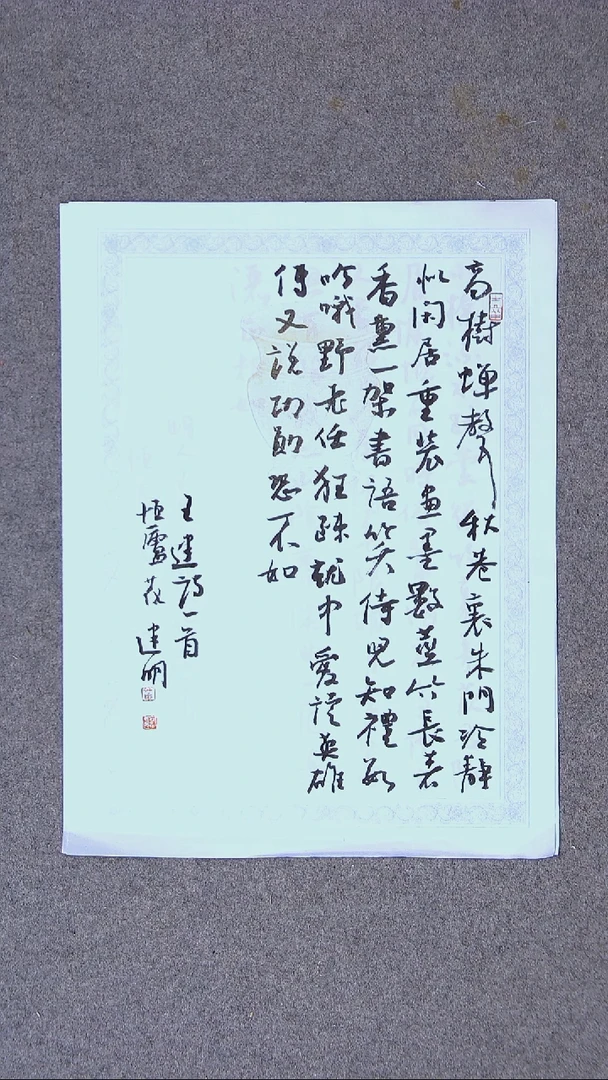 高樹蝉聲秋巷裏朱門冷靜
似闲居重裝畫墨數莖竹長著
香薰一架書語笑侍兒知禮數
吟哦野老任狂疎就中愛讀英雄
傳又說功勛恐不如
王建詩一首
恒廬 建明